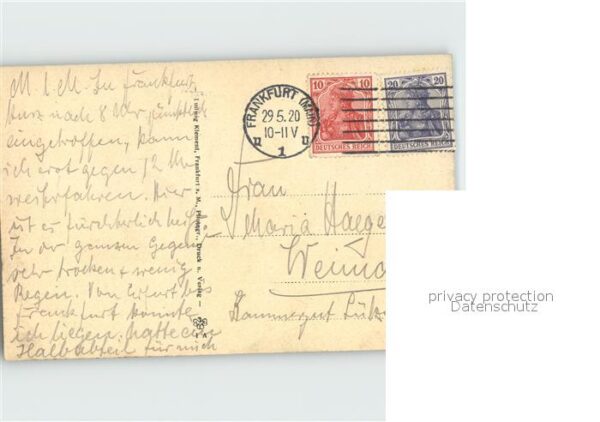 M. l. M. In Frankfurt
kurz nach 8 Uhr pünktlich
eingetroffen, kann
ich erst gegen 12 Uhr
weiterfahren. Hier
ist es fürchterlich heiß
In der ganzen Gegend
sehr trocken & wenig
Regen. Von Erfurt bis
Frankfurt konnte
ich liegen, hatte ein
Halbabteil für mich
Ludwig Klement, Frankfurt a. M., Druck u. Verlag
A
FRANKFURT (MAIN)
29.5.20
10-11 V
1
10 10
DEUTSCHES REICH
20 20
DEUTSCHES REICH
Frau
Maria
Kammergut
privacy protection
Datenschutz